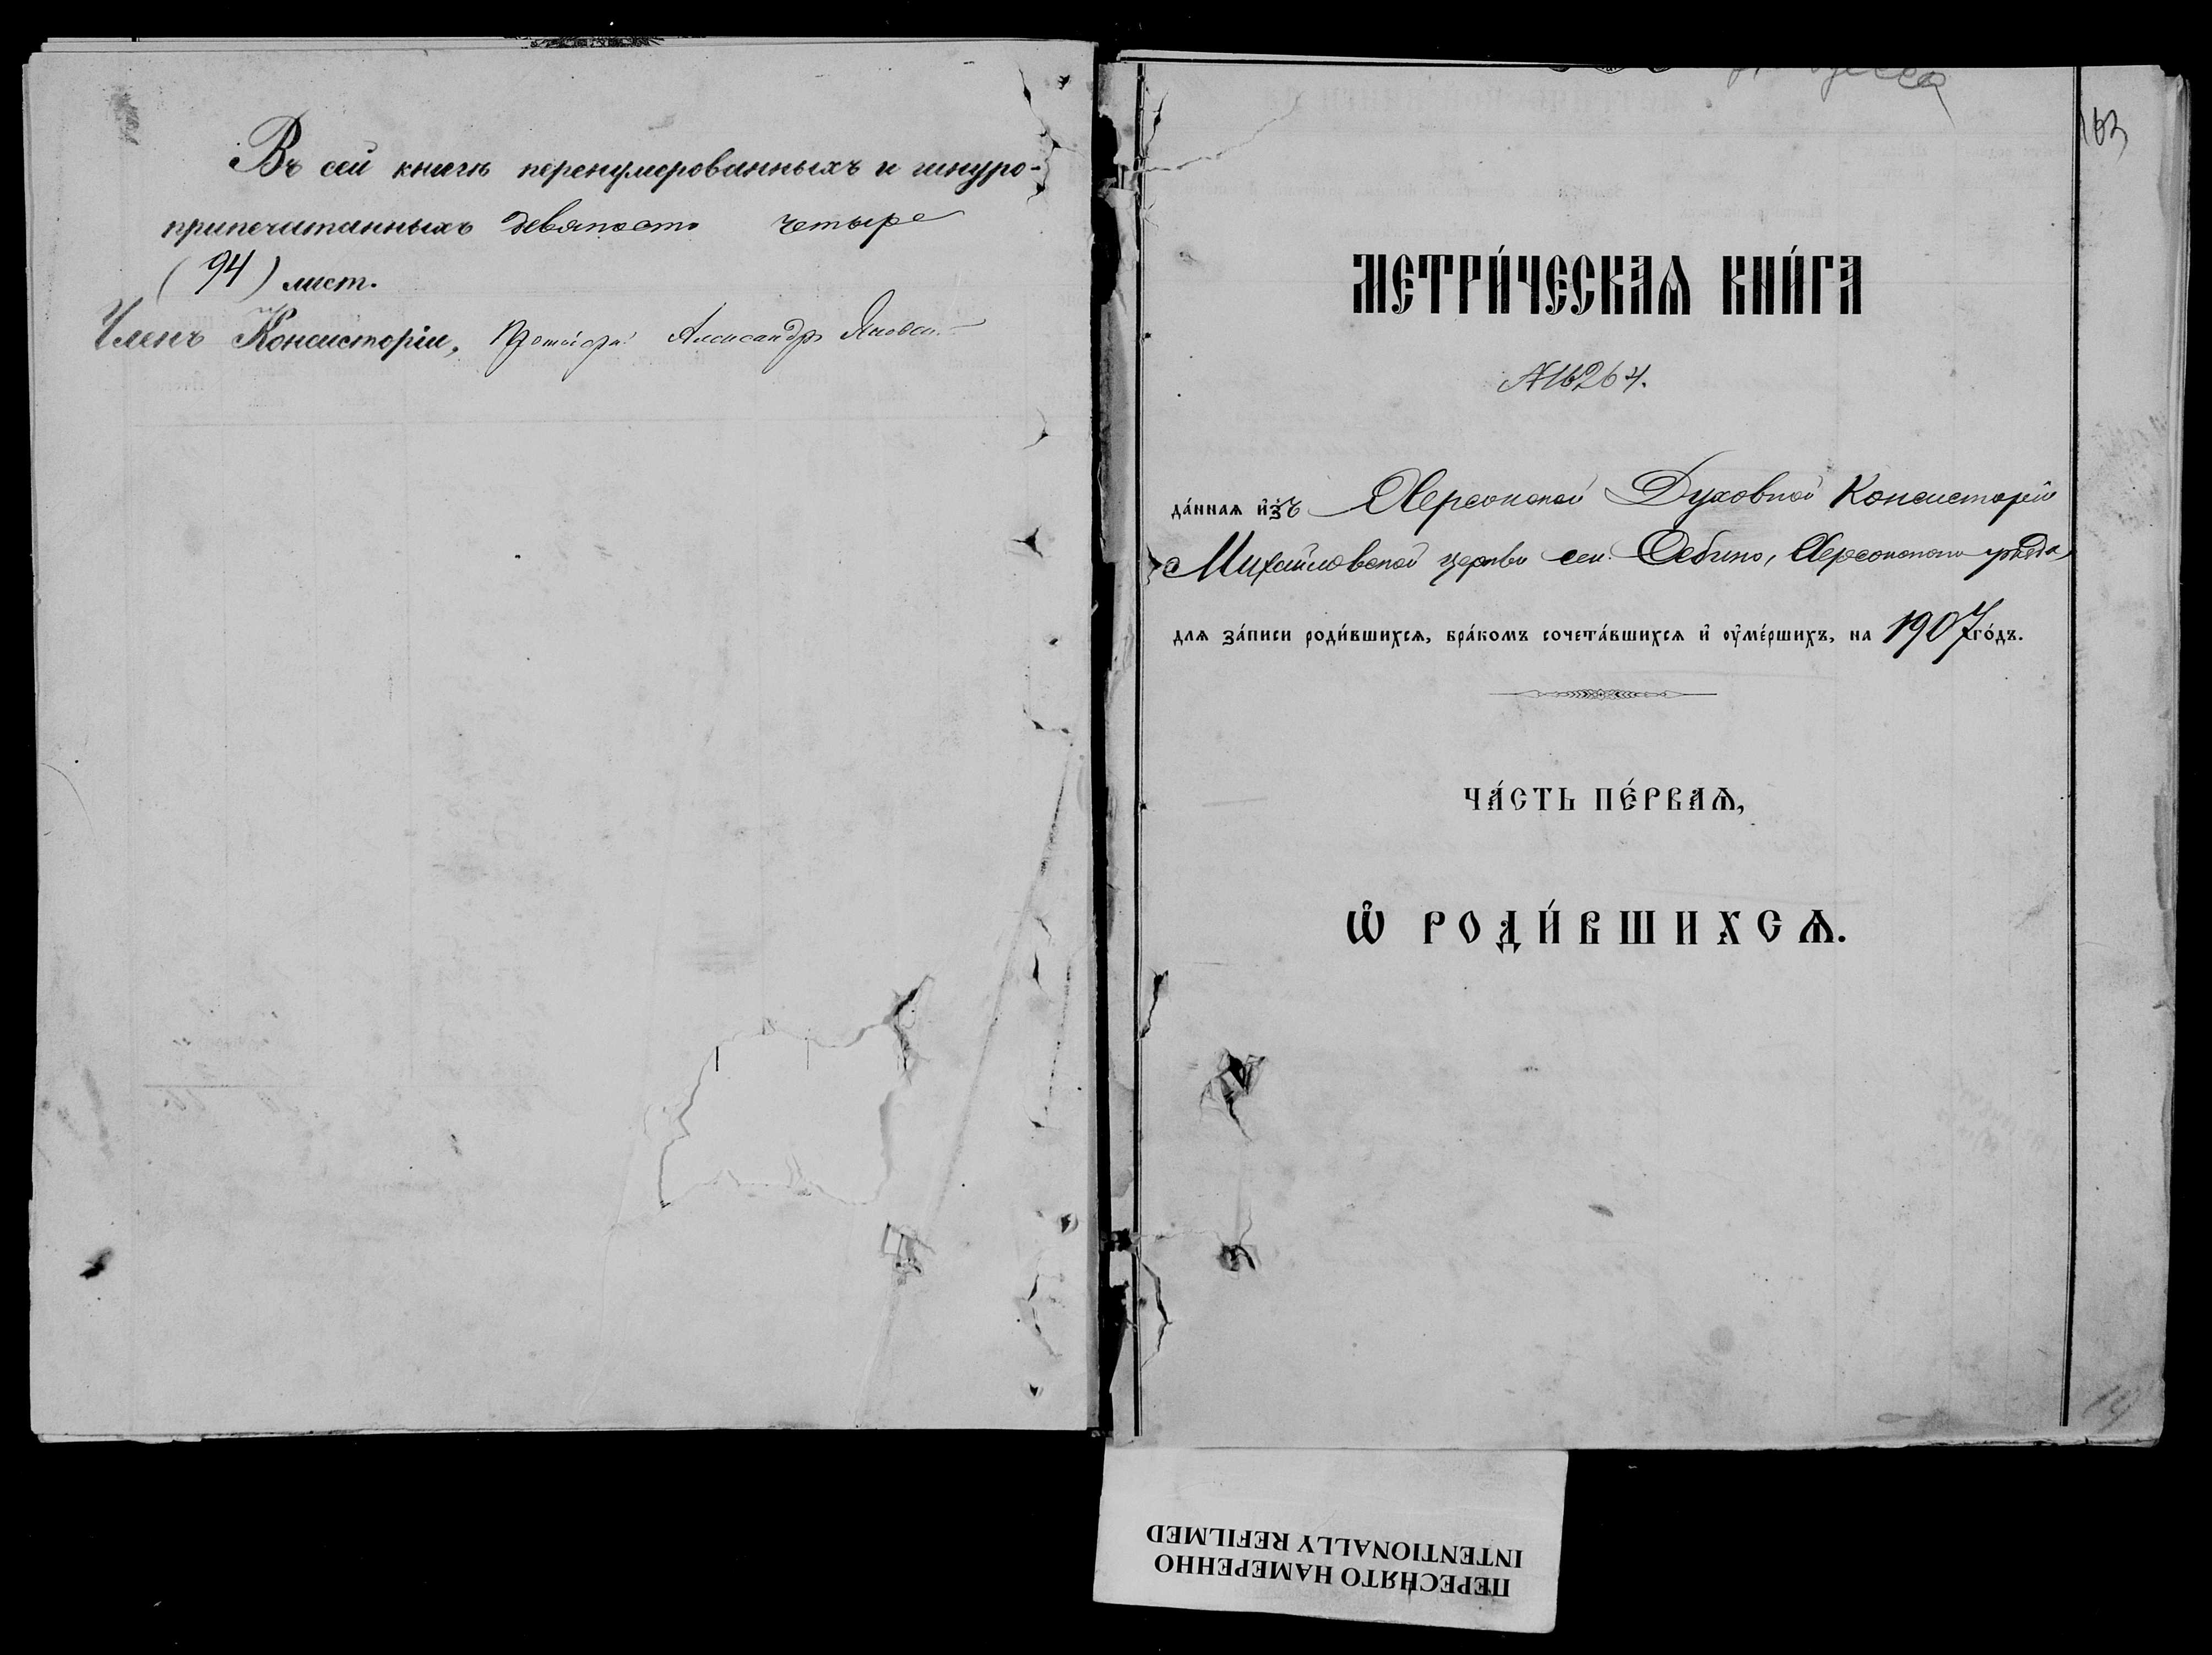 Въ сей книгѣ перенумерованныхъ и шнуро-
припечатанныхъ девяносто четыре
(94) лист.
Членъ Консисторіи, Александръ
163
МЕТРИ́ЧЕСКАѦ КНИ́ГА
№16264.
да́ннаѧ и҆зъ Херсонской Духовной Консисторіи
Михайловской церкви сел. Себино, Херсонскаго уѣзда,
длѧ за́писи роди́вшихсѧ, бра́комъ сочета́вшихсѧ и҆ оу҆ме́ршихъ, на 1907 го́дъ.
ЧА́СТЬ ПЕ́РВАѦ,
Ѡ҆ РОДИ́ВШИХСѦ.
14
ПЕРЕСНЯТО НАМЕРЕННО
INTENTIONALLY REFILMED